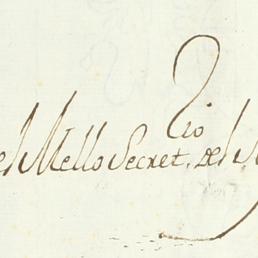 rio
el Mello Secret. del S